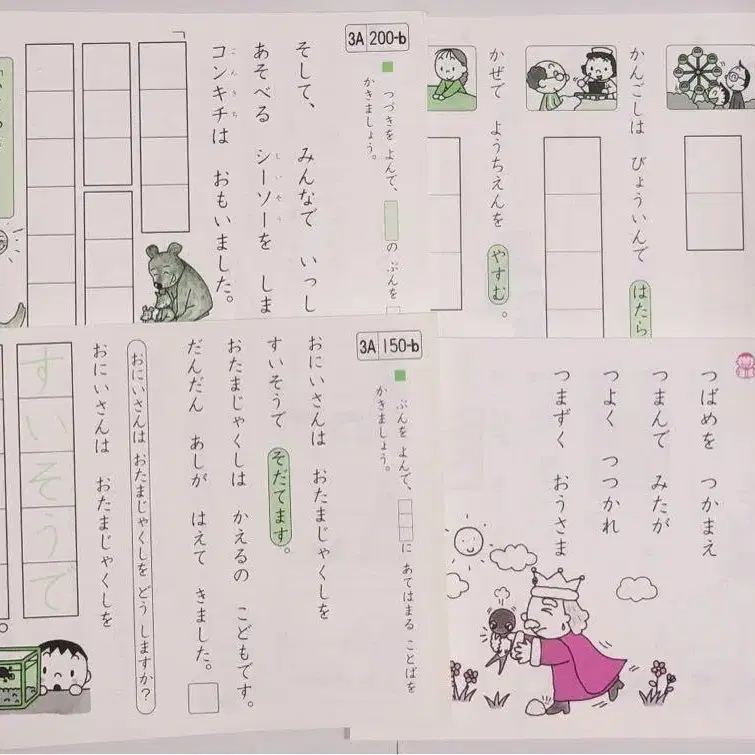 3A 200-b
つづきを よんで、 の ぶんを
かきましょう。
そして、 みんなで いっし
あそべる シーソーを しま
しいそう
コンキチは おもいました。
こんきち
かんごしは びょういんで はたら
かぜで ようちえんを やすむ。
3A 150-b
ぶんを よんで、 に あてはまる ことばを
かきましょう。
おにいさんは おたまじゃくしを
すいそうで そだてます。
おたまじゃくしは かえるの こどもです。
だんだん あしが はえて きました。
おにいさんは おたまじゃくしを どう しますか?
おにいさんは おたまじゃくしを
すいそうで
つばめを つかまえ
つまんで みたが
つよく つつかれ
つまずく おうさま